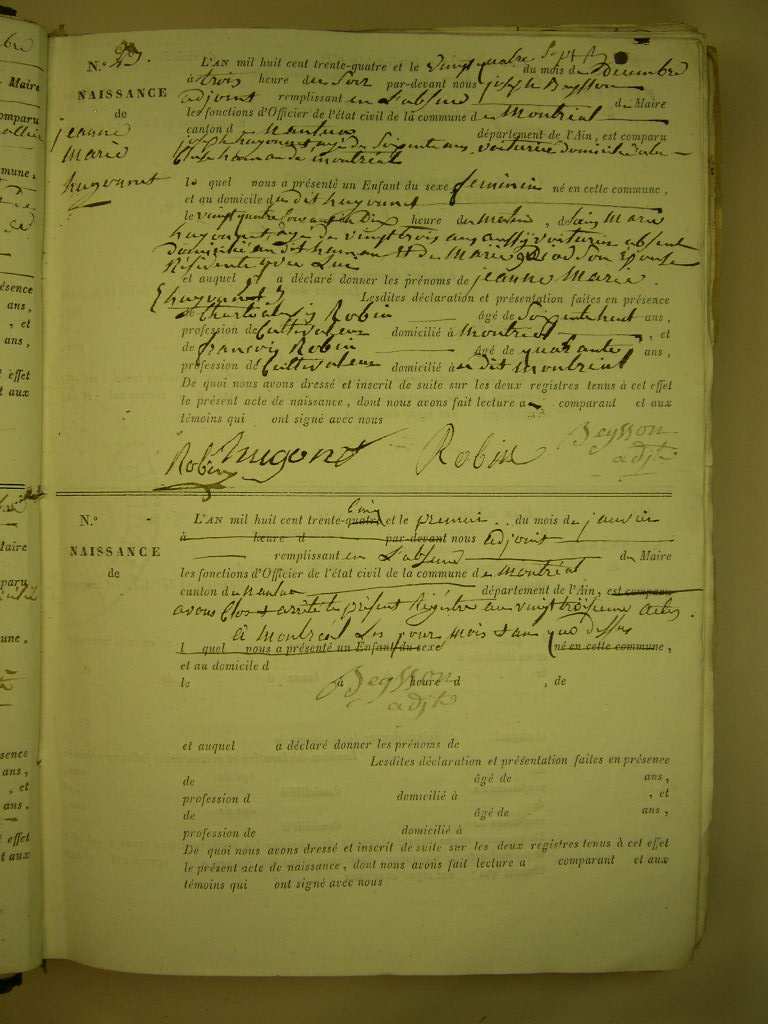 N.° 23.
NAISSANCE
de
jeanne
marie
hugonnet
L'AN mil huit cent trente-quatre et le vingt quatre du mois de Décembre
à trois heure du Soir par-devant nous joseph Beysson
adjoint remplissant en L'absence du Maire
les fonctions d'Officier de l'état civil de la commune de Montréal
canton de Nantua département de l'Ain, est comparu
joseph hugonnet agé de Soixante ans, voiturier domicilié au
hameau de montréal
le quel nous a présenté un Enfant du sexe feminin né en cette commune,
et au domicile du dit hugonnet
le vingt quatre Courant à Dix heure du Matin, de Marie
hugonnet agé de vingt trois ans aussy voiturier absent
domicilié au dit hameau et de Marie son Epouse
Résidente avec Lui
et auquel a déclaré donner les prénoms de jeanne Marie.
Lesdites déclaration et présentation faites en présence
de Robin âgé de Soixante huit ans,
profession de Cultivateur domicilié à Montréal, et
de françois Robin âgé de quarante ans,
profession de Cultivateur domicilié au dit montréal
De quoi nous avons dressé et inscrit de suite sur les deux registres tenus à cet effet
le présent acte de naissance, dont nous avons fait lecture au comparant et aux
témoins qui ont signé avec nous
Robin hugonet Robin Beysson
adjt
N.°
NAISSANCE
de
L'AN mil huit cent trente-quatre cinq et le premier du mois de janvier
à heure d par-devant nous adjoint
remplissant en L'absence du Maire
les fonctions d'Officier de l'état civil de la commune de Montréal
canton de Nantua département de l'Ain, est comparu
avons Clos et arrêté le présent Régistre au vingt troisieme acte.
à Montréal Les jour, mois et an que dessus
l quel nous a présenté un Enfant du sexe né en cette commune,
et au domicile d
le à heure d , de
Beysson
adjt
et auquel a déclaré donner les prénoms de
Lesdites déclaration et présentation faites en présence
de âgé de ans,
profession d domicilié à , et
de âgé de ans,
profession de domicilié à
De quoi nous avons dressé et inscrit de suite sur les deux registres tenus à cet effet
le présent acte de naissance, dont nous avons fait lecture a comparant et aux
témoins qui ont signé avec nous